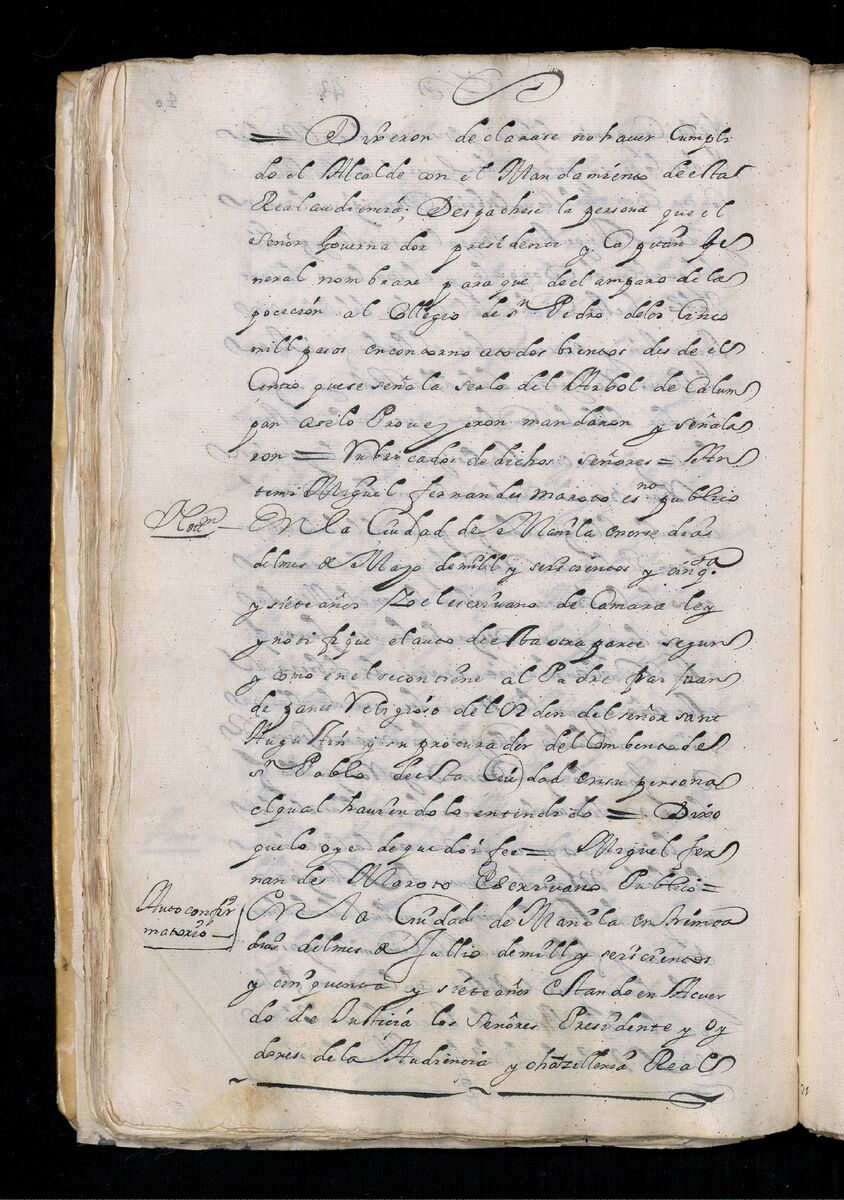 = Dixeron declarase no haver Cumpli
do el Alcalde con el Mandamiento de esta
Real audiencia, Despachese la persona que el
Señor Governador presidente y Capitan Ge
neral nombrare para que de el amparo de la
pocecion al Collegio de sn Pedro delos Cinco
mill pasos en contorno a todos bientos des de el
Centro que se señala serlo del Arbol de Calum
pan asi lo Proveyeron mandaron y señala
ron = Rubricados de dichos señores = An
temi Miguel fernandes maroto esno publico
Notn
En la Ciudad de Manila en onse dias
del mes de Mayo de mill y seiscientos y cinqta
y siete años Yo el escrivano de Camara ley
y notifique el auto de esta otra parte segun
y como en el se contiene al Padre fray Juan
de panes Religioso del Orden del señor sant
Augustin y su procurador del Combento de
sn Pablo de esta Ciudad en su persona
el qual haviendolo entendido = Dixo
que lo oye de que doi fee = Miguel fer
nandes Maroto Escrivano Publico =
Auto confir
matorio
En la Ciudad de Manila en treinta
dias del mes de Jullio de mill y seiscientos
y cinquenta y siete años Estando en Acuer
do de Justicia los Señores Presidente y Oy
dores de la Audiencia y chanzilleria Real